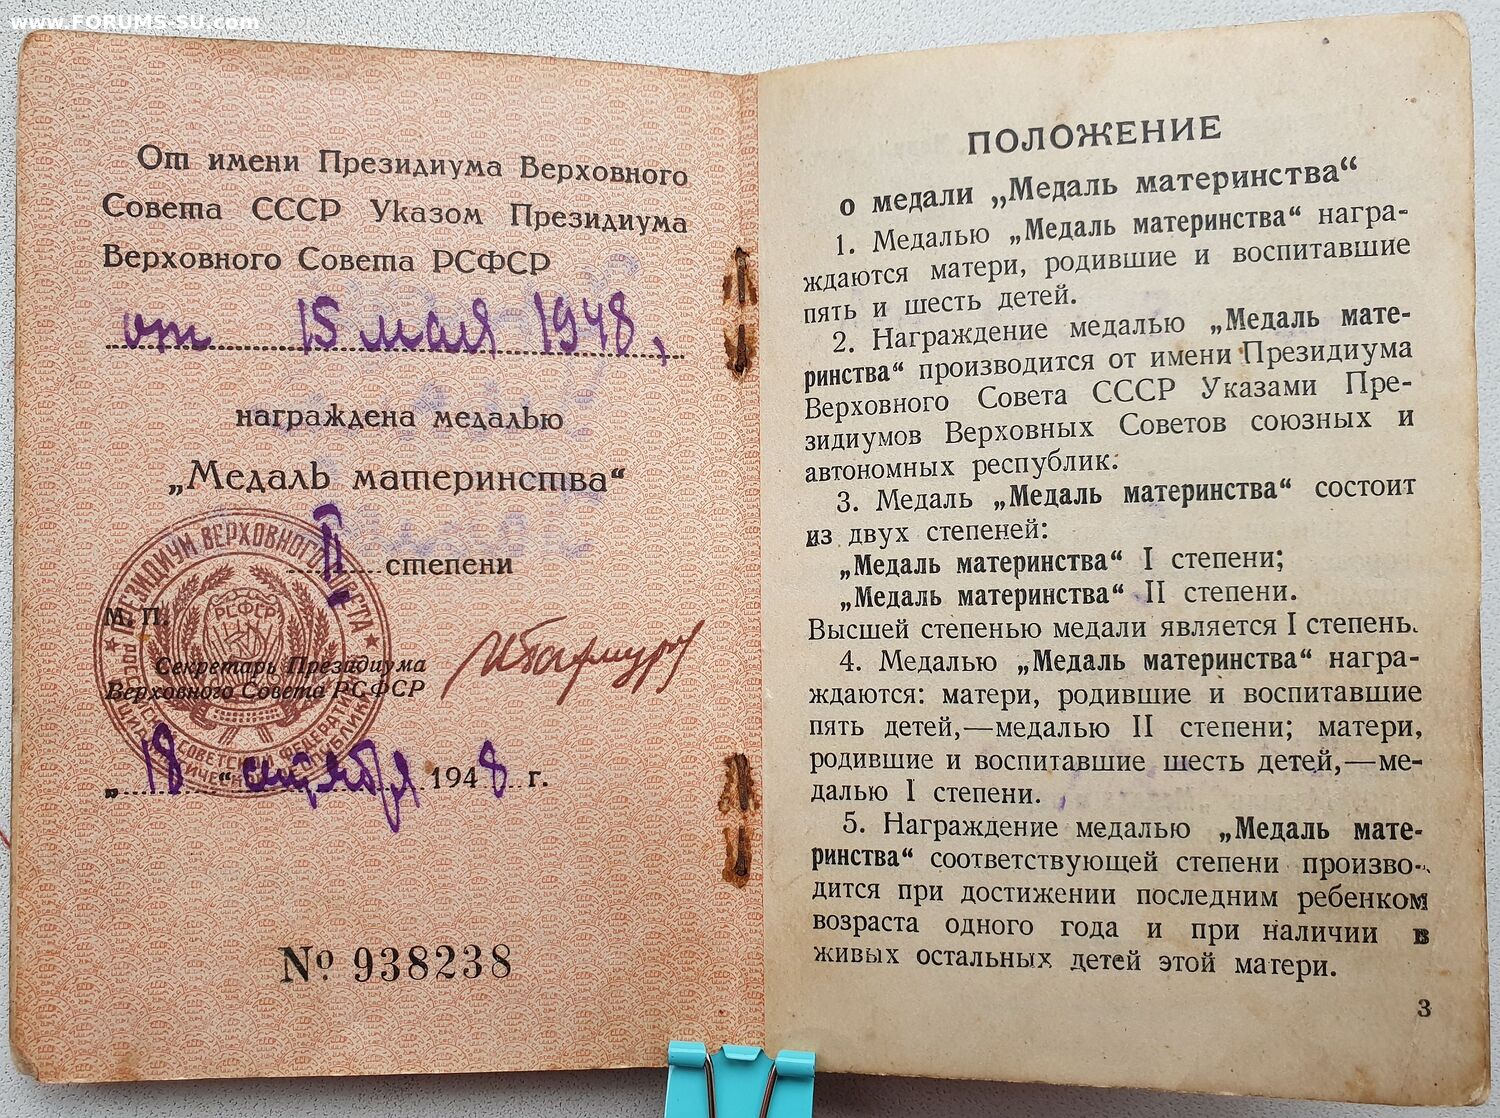 www.FORUMS-SU.com
От имени Президиума Верховного
Совета СССР Указом Президиума
Верховного Совета РСФСР
от 15 мая 1948,
награждена медалью
„Медаль материнства“
II степени
М. П.
Секретарь Президиума
Верховного Совета РСФСР
РСФСР
„18“ октября 1948 г.
№ 938238
ПОЛОЖЕНИЕ
о медали „Медаль материнства“
1. Медалью „Медаль материнства“ награ-
ждаются матери, родившие и воспитавшие
пять и шесть детей.
2. Награждение медалью „Медаль мате-
ринства“ производится от имени Президиума
Верховного Совета СССР Указами Пре-
зидиумов Верховных Советов союзных и
автономных республик.
3. Медаль „Медаль материнства“ состоит
из двух степеней:
„Медаль материнства“ I степени;
„Медаль материнства“ II степени.
Высшей степенью медали является I степень.
4. Медалью „Медаль материнства“ награ-
ждаются: матери, родившие и воспитавшие
пять детей,—медалью II степени; матери,
родившие и воспитавшие шесть детей,—ме-
далью I степени.
5. Награждение медалью „Медаль мате-
ринства“ соответствующей степени произво-
дится при достижении последним ребенком
возраста одного года и при наличии в
живых остальных детей этой матери.
3